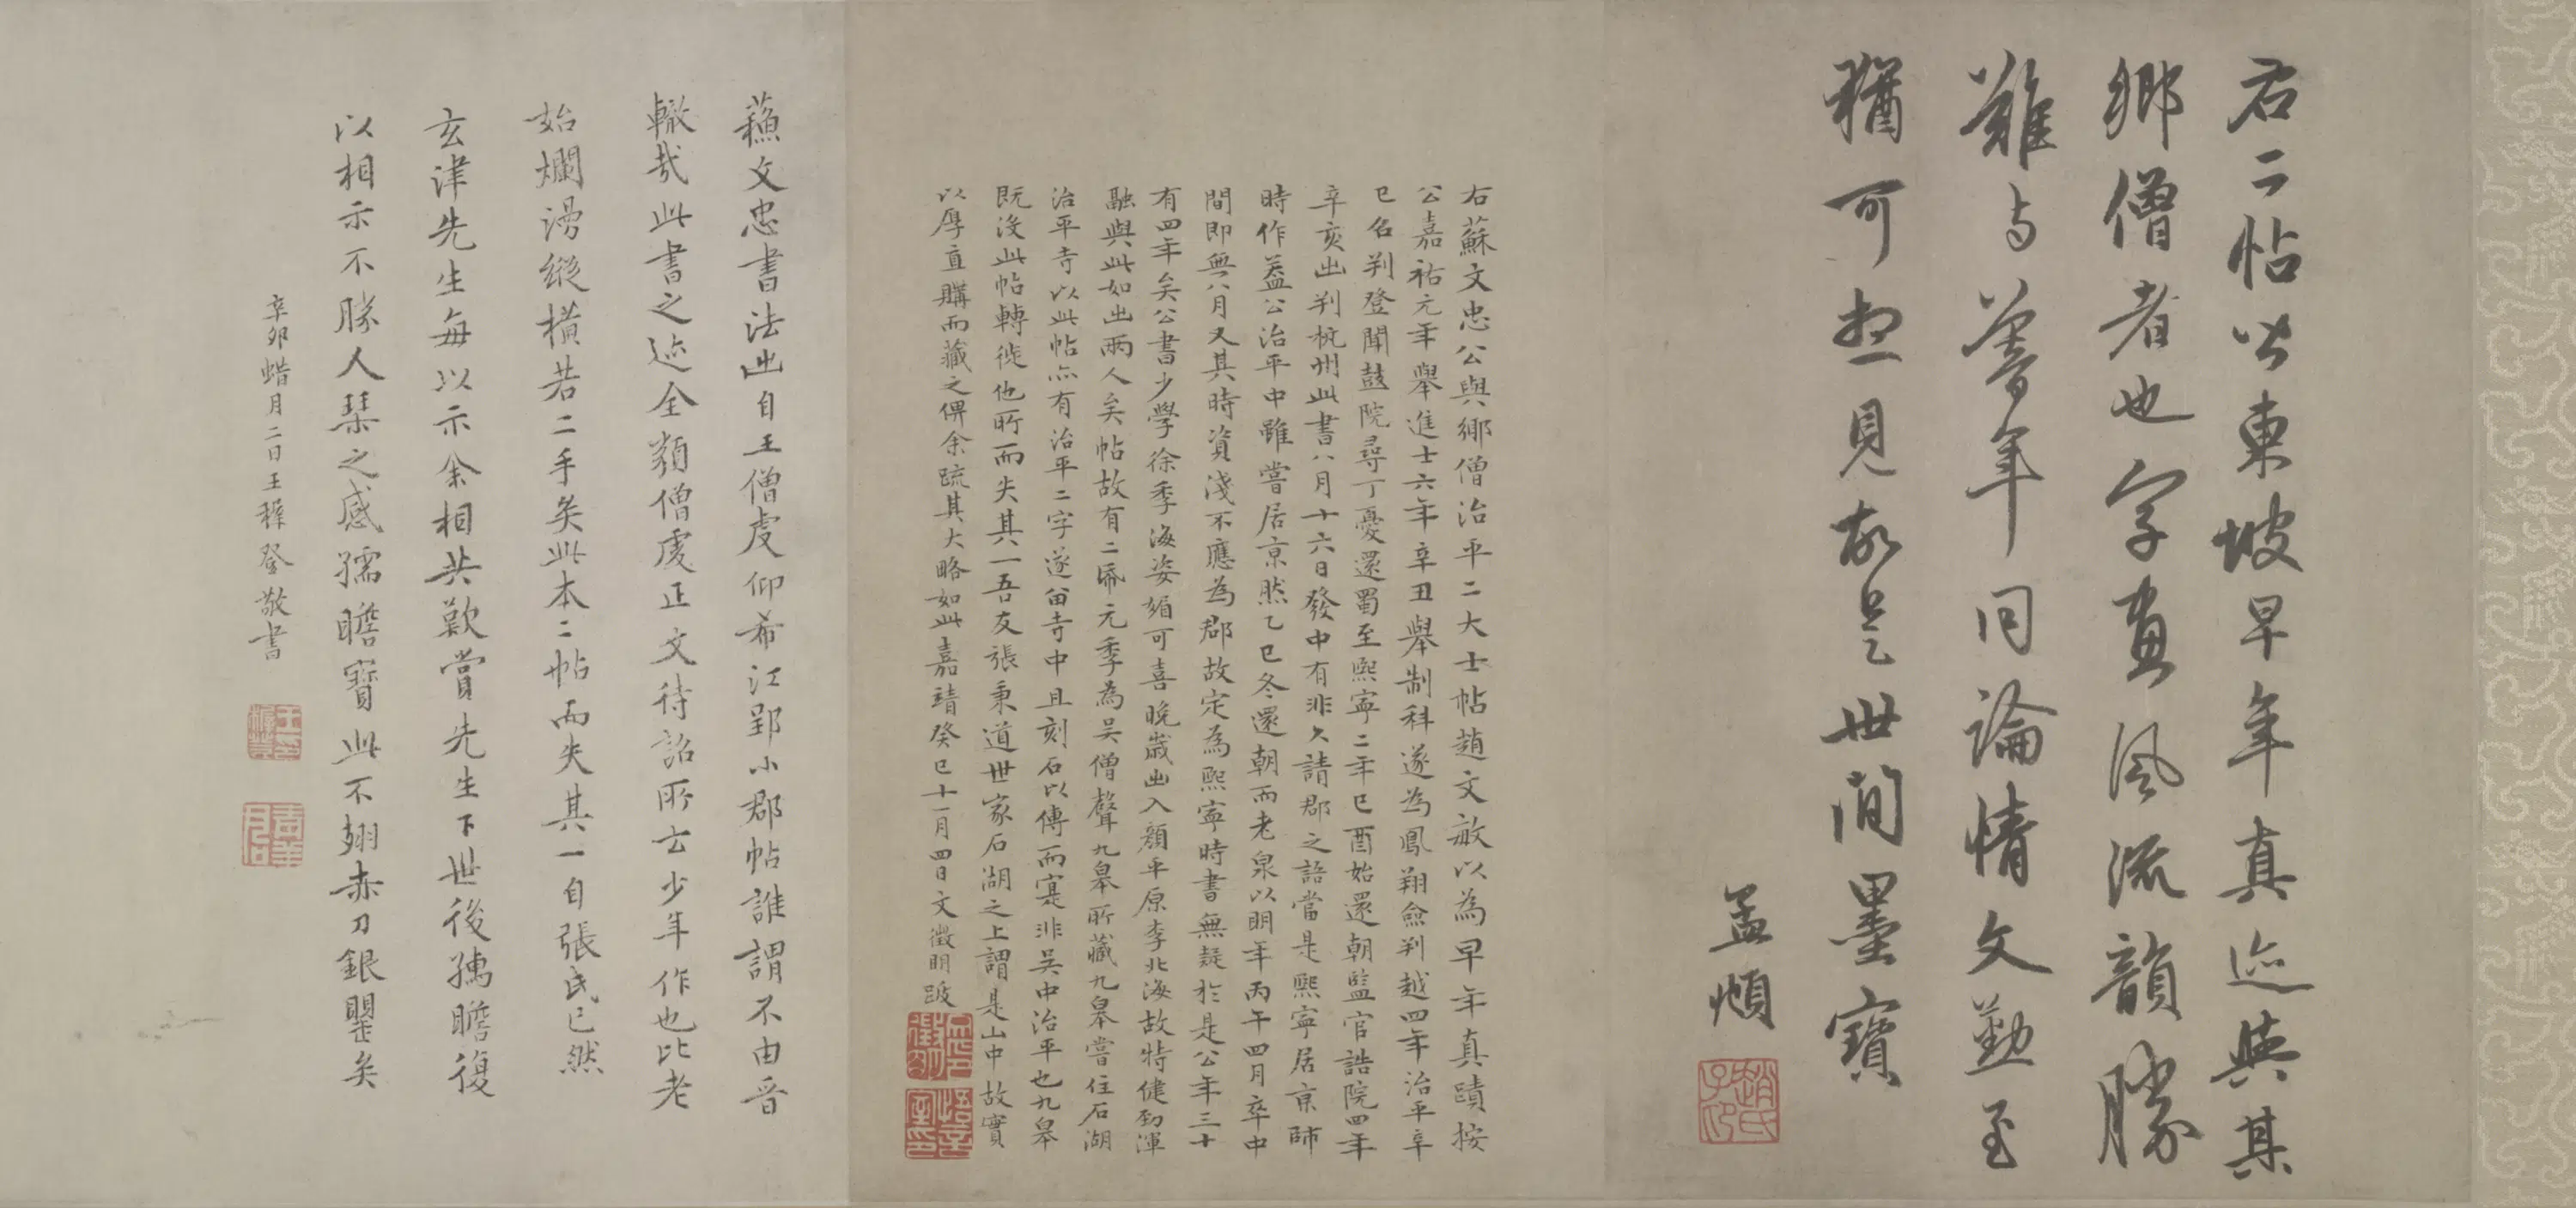 右二帖皆東坡早年真迹與其
鄉僧者也字畫風流韻勝
難与暮年同論情文勤至
猶可想見故是世間墨寶
孟頫
趙氏子昂
右蘇文忠公與鄉僧治平二大士帖趙文敏以為早年真蹟按
公嘉祐元年舉進士六年辛丑舉制科遂為鳳翔僉判越四年治平辛
巳名判登聞鼓院尋丁憂還蜀至熙寧二年己酉始還朝監官誥院四年
辛亥出判杭州此書八月十六日發中有非久請郡之語當是熙寧居京師
時作蓋公治平中雖嘗居京然乙巳冬還朝而老泉以明年丙午四月卒中
間即無八月又其時資淺不應為郡故定為熙寧時書無疑於是公年三十
有四年矣公書少學徐季海姿媚可喜晚歲出入顏平原李北海故特健勁渾
融與此如出兩人矣帖故有二昂元季為吳僧聲九皋所藏九皋嘗住石湖
治平寺以此帖亦有治平二字遂留寺中且刻石以傳而寔非吳中治平也九皋
既沒此帖轉徙他所而失其一吾友張秉道世家石湖之上謂是山中故實
以厚直購而藏之俾余疏其大略如此嘉靖癸巳十一月四日文徵明跋
蘇文忠書法出自王僧虔仰希江郢小郡帖誰謂不由晉
轍哉此書之迹全類僧虔正文待詔所云少年作也比老
始爛漫縱橫若二手矣此本二帖而失其一自張氏已然
玄津先生每以示余相共歎賞先生下世後孺瞻復
以相示不勝人琹之感孺瞻寶此不翅赤刀銀瓕矣
辛卯蜡月二日王穉登敬書